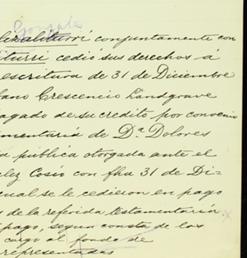 Gonzalo
lizaliturri conjuntamente con
iturri cedió sus derechos á
escritura de 31 de Diciembre
fano Crescencio Landgrave
agado de su crédito por convenio
mentaria de D.ª Dolores
a pública otorgada ante el
lez Cosio con fha 31 de Di=
cual se le cedieron en pago
s de la referida testamentaria
pago, segun consta de los
cargo al fondo de
representadas